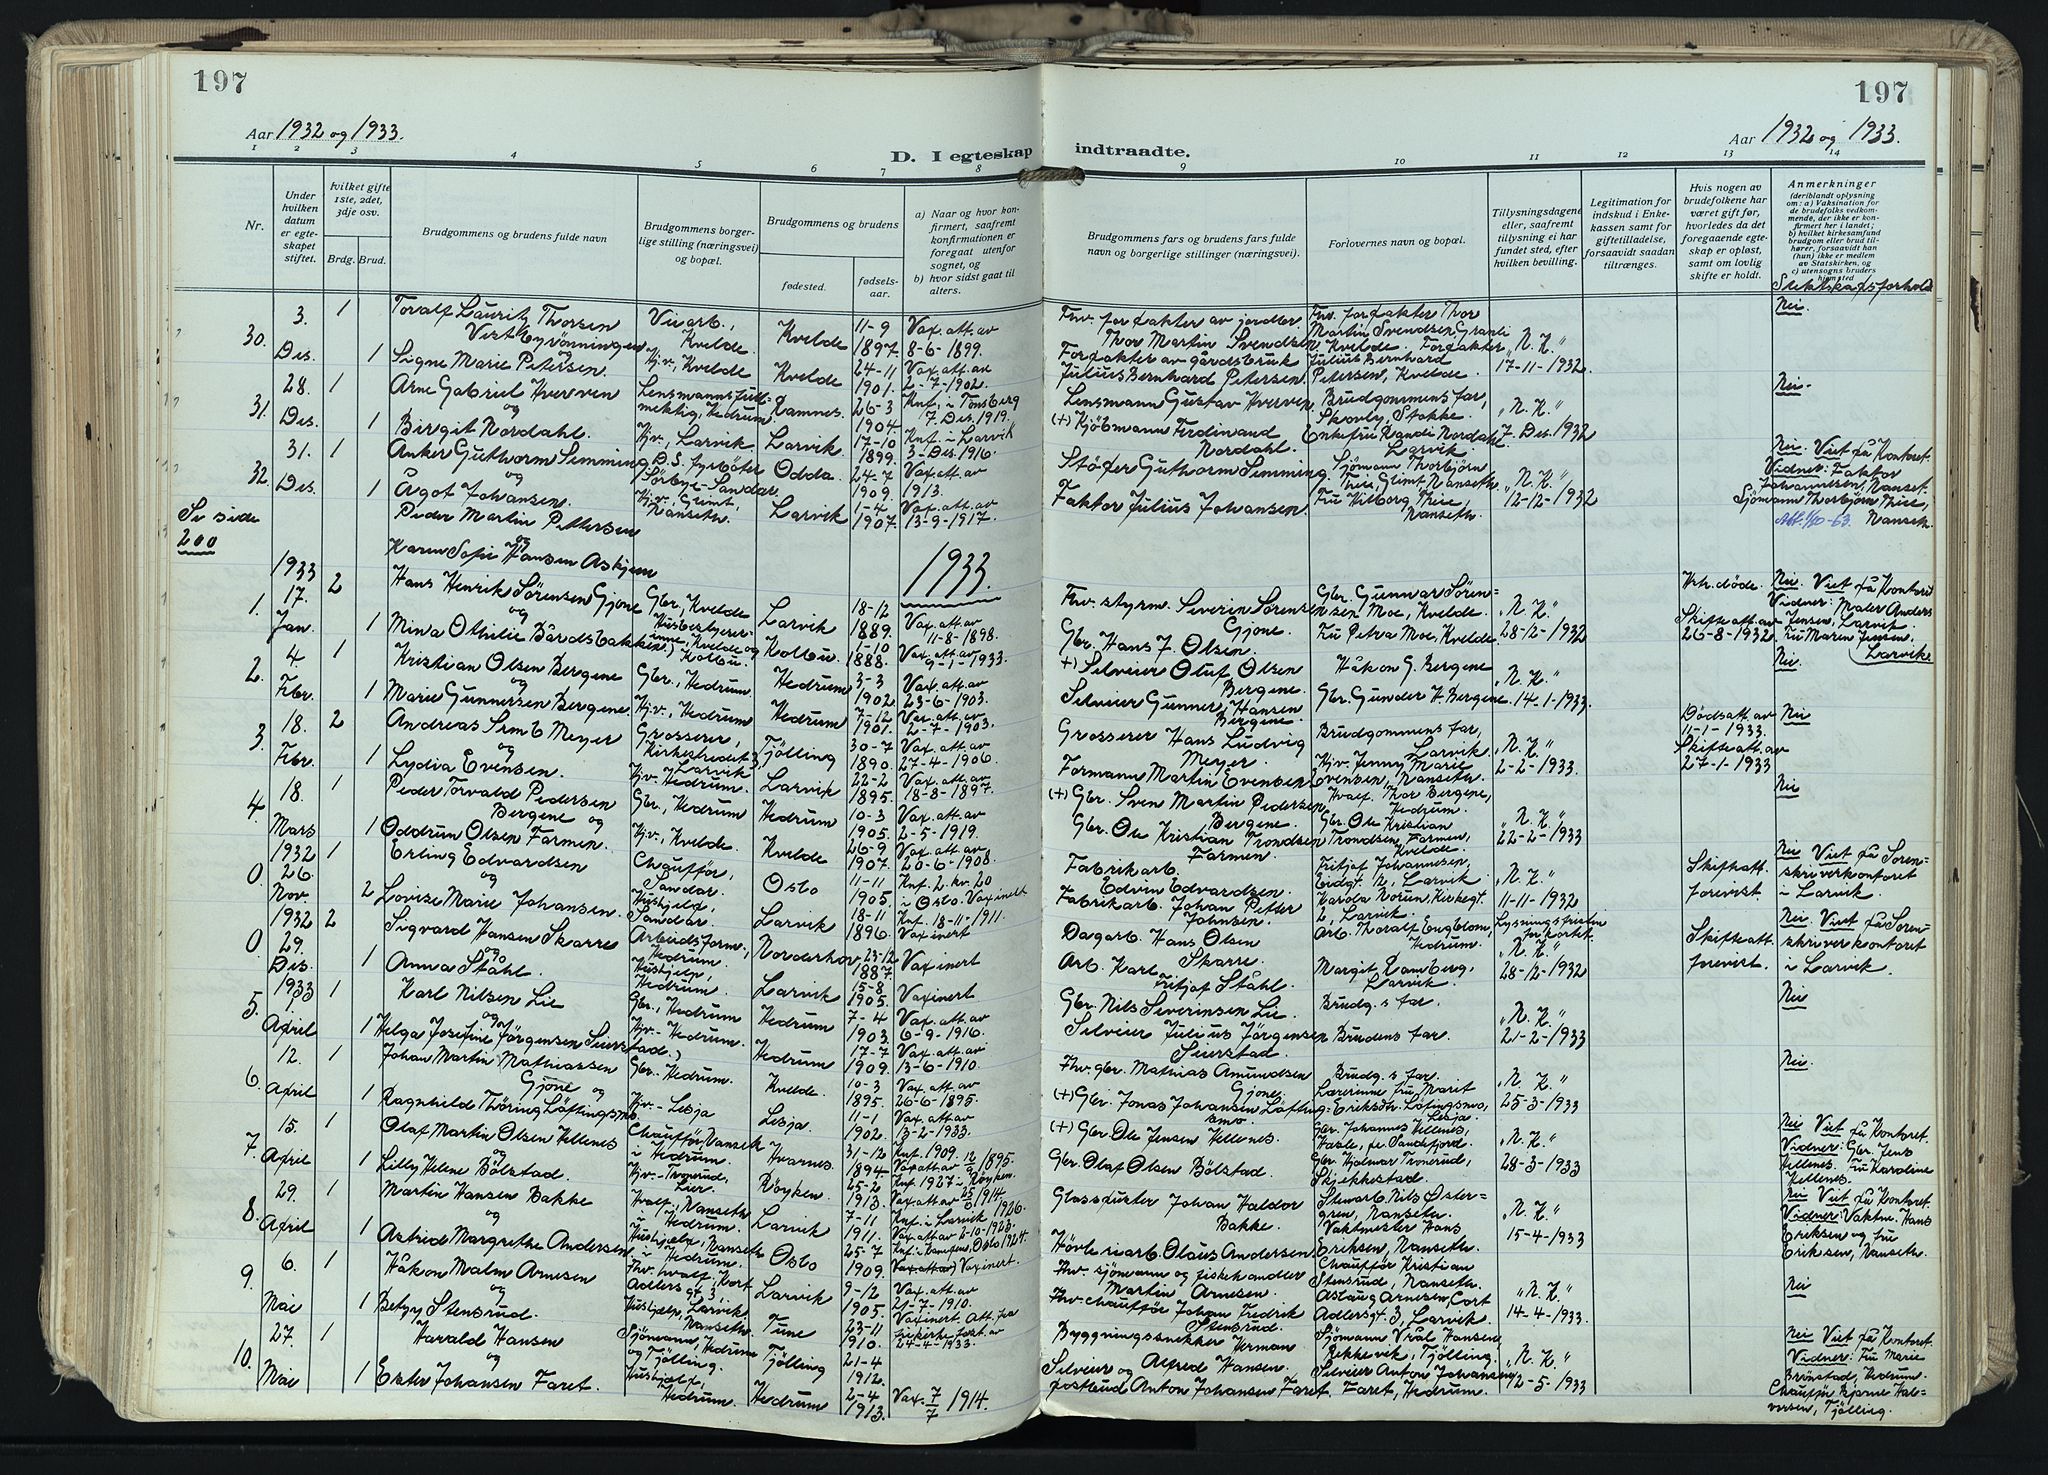 197
Aar 1932 og 1933.
D. I egteskap indtraadte.
197
Aar 1932 og 1933.
1 2 3 4 5 6 7 8 9 10 11 12 13 14
Nr.
Under hvilken datum er egteskapet stiftet.
hvilket gifte 1ste, 2det, 3dje osv.
Brdg. Brud.
Brudgommens og brudens fulde navn
Brudgommens borgerlige stilling (næringsvei) og bopæl.
Brudgommens og brudens
fødested.
fødselsaar.
a) Naar og hvor konfirmert, saafremt konfirmationen er foregaat utenfor sognet, og
b) hvor sidst gaat til alters.
Brudgommens fars og brudens fars fulde navn og borgerlige stillinger (næringsvei).
Forlovernes navn og bopæl.
Tillysningsdagene eller, saafremt tillysning ei har fundet sted, efter hvilken bevilling.
Legitimation for indskud i Enkekassen samt for giftetilladelse, forsaavidt saadan tiltrænges.
Hvis nogen av brudefolkene har været gift før, hvorledes da det foregaaende egteskap er opløst, samt om lovlig skifte er holdt.
Anmerkninger
(deriblandt oplysning om: a) Vaksination for de brudefolks vedkommende, der ikke er konfirmert her i landet; b) hvilket kirkesamfund brudgom eller brud tilhører, forsaavidt han (hun) ikke er medlem av Statskirken, og c) utensogns bruders hjemsted
Slektskapsforhold
30. 3. Des. 1 Toralf Lauritz Thorsen
Kvelde 11-9 1897. Vax. att. av 8-6-1899.
Thor Martin Svendsen
Martin Svendsen Granli Kvelde.
"N. K." 17-11-1932.
Nei.
1 Signe Marie Petersen.
Hj.v., Kvelde Kvelde 24-11 1901. Vax. att. av 2-7-1902.
Julius Bernhard Petersen.
Julius Bernhard Petersen, Kvelde.
31. 28. Des. 1 Arne Gabriel Hverven
og
Hedrum Ramnes. 26-3 1904 Knf. i Tønsberg 7. Des. 1919.
Lensmann Gustav Hverven.
Brudgommens far, Stokke.
"N. K." 7. Des. 1932
Nei.
1 Birgit Nordahl.
Hj.v., Larvik Larvik. 17-10 1899. Knf. i Larvik 3-Des. 1916.
(+) Kjøbmann Ferdinand Nordahl.
Enkefru Randi Nordahl Larvik.
32. 31. Des. 1 Anker Guthorm Simming
og
D.S. fyrbøter Sandar. Odda. 24-7 1909. Vax. att. av 1913.
Guthorm Simming
Sjömann Thorbjörn Thie, Nanseth.
"N. K." 12-12-1932
Nei. Viet på Kontoret.
Vidner: Faktor Johannesen, Nanset.
Sjömann Thorbjörn Thie, Nanseth.
1 Ågot Johansen.
Hj.v. Nanseth. Larvik 1-4 1907. Vax. att. av 13-9-1917.
Faktor Julius Johansen.
Fru Thie, Nanseth.
Se side 200
Peder Martin Pettersen
og
Karen Sofie Hansen Askjem
1933.
1. 1933 17. Jan. 2 Hans Henrik Sørensen Gjone
og
Gbr., Kvelde Larvik 18-12 1889. Vax. att. av 11-8-1898.
Fhv. styrm. Severin Sørensen Gjone.
Gbr. Gunnar Sørensen Moe, Kvelde.
"N. K." 28-12-1932
Hstr. døde. Skifteatt. av 26-8-1932.
Nei. Viet på Kontoret
Vidner: Maler Anders Jensen, Larvik.
Fru Maren Jensen, Larvik.
1 Minda Othilie Bårdsbakken.
Kvelde og Kolbu. Kolbu. 1-10 1888. Vax. att. av 9-1-1933.
Gbr. Hans J. Olsen.
Fru Petra Moe, Kvelde
2. 4 Febr. 1 Kristian Olsen Bergene
og
Gbr., Hedrum. Hedrum 3-3 1902. Vax. att. av 23-6-1903.
+) Selveier Oluf Olsen Bergene.
Håkon G. Bergene
"N. K." 14-1-1933.
Nei.
1 Marie Gunnersen Bergene.
Hj.v., Hedrum Hedrum 7-12 1901. Vax. att. av 2-7-1903.
Selveier Gunner Hansen Bergene.
Gbr. Gunder H. Bergene
3. 18. Febr. 2 Andreas Simb Meyer
og
Grosserer, Larvik Tjölling 30-7 1890. Vax. att. av 27-4-1906.
Grosserer Hans Ludvig Meyer.
Brudgommens far, Larvik.
"N. K." 2-2-1933.
Dødsatt. av 11-1-1933. Skifteatt. av 27-1-1933
Nei
1 Lydia Evensen.
Hj.v. Hedrum. Larvik 22-2 1895. Vax. att. av 18-8-1897.
Formann Martin Evensen
Hj.v. Jenny Marie Evensen, Nanseth.
4. 18. Mars 1 Peder Torvald Pedersen Bergene og
Gbr., Hedrum Hedrum 10-3 1905. Vax. att. av 2-5-1919.
(+) Gbr. Sven Martin Pedersen Bergene.
Hvalf. Thor Bergene, Hedrum.
"N. K." 22-2-1933
Nei
1 Oddrun Olsen Farmen.
Hj.v., Kvelde. Kvelde 26-9 1907. Vax. att. av 20-6-1908.
Gbr. Ole Kristian Trondsen Farmen.
Gbr. Ole Kristian Trondsen, Farmen, Kvelde.
0. 1932 26. Nov. 1 Erling Edvardsen
og
Chauffør, Sandar. Oslo 11-11 1905. Knf. 2. kv. 20 i Oslo. Vaxinert
Fabrikarb. Edvin Edvardsen.
Fritjof Johannesen, Larvik
"N. K." 11-11-1932
Skifteatt. forevist.
Nei Viet på Sorenskriverkontoret i Larvik
2 Lovise Marie Johansen.
Hushjelp, Sandar. Larvik 18-11 1896. Knf. 18-11-1911. Vaxinert
Fabrikarb. Johan Petter Johnsen.
Harda Norun, Kirkegt. 2, Larvik.
0. 1932 29. Des. 2 Sigvard Hansen Skarre
og
Arbeidsform., Hedrum. Norderhov 23-12 1887 Vaxinert
Dagarb. Hans Olsen Skarre.
Arb. Thoralf Engblom, Hedrum.
"N. K." 28-12-1932
Skifteatt. forevist.
Nei Viet på Sorenskriverkontoret i Larvik.
1 Anna Ståhl.
Hushjelp, Hedrum. Larvik 15-8 1905. Vaxinert
Arb. Karl Fritjof Ståhl.
Margit Ramberg, Larvik.
5. 1933 1. April 1 Karl Nilsen Lie
og
Gbr., Hedrum Hedrum 7-4 1903. Vax. att. av 6-9-1916.
Gbr. Nils Severinsen Lie
Brudg.s far.
"N. K." 2-2-1933
Nei
1 Helga Josefine Jørgensen Seierstad.
Hj.v. Hedrum. Hedrum 17-7 1909. Vax. att. av 13-6-1910.
Selveier Julius Jørgensen Seierstad.
Brudens far.
6. 12. April 1 Johan Martin Mathiassen Gjone og
Gbr. Hedrum. Kvelde. 10-3 1895. Vax. att. av 26-6-1895.
Fhv. gbr. Mathias Amundsen Gjone.
Brudg.s far.
"N. K." 25-3-1933
Nei.
1 Ragnhild Thøring Løftingsmo.
Hj.v. - Lesja Lesja. 11-1 1902. Vax. att. av 13-2-1933.
(+) Gbr. Jonas Johansen Løftingsmo
Lærerinne Fru Marit Lesja
7. 15. April 1 Olaf Martin Olsen Hellenes
og
Chauffør, i Hedrum. Hvarnes 31-12 1894. Knf. 1909. 1895.
(+) Gbr. Ole Jensen Hellenes.
Gbr. Johannes Hellenes, Sandefjord.
"N. K." 28-3-1933
Nei Viet på Kontoret.
Vidner: Gbr. Jens Hellenes. Fru Karoline Hellenes.
1 Lilly Helene Bölstad.
Hj.v. - Lier Röyken. 25-2 1913. Knf. 1927 i Röyken. Vax att av 1914.
Gbr. Olaf Olsen Bölstad.
Gbr. Hjalmar Tronerud, Skjekkestad.
8. 29. April 1 Martin Hansen Bakke
og
Hvalf., Nanseth Hedrum. Larvik 7-11 1911. Knf. i Larvik 1926.
Glasspuster Johan Haldor Bakke.
Stewart Nils Østergren, Nanseth.
"N. K." 15-4-1933
Nei Viet på Kontoret.
Vidner: Vaktm. Hans Eriksen og fru Eriksen, Nanseth.
1 Astrid Margrethe Andersen
Hushjelp, Nanseth i Hedrum. Oslo 25-7 1909. Oslo 1924. Vaxinert.
Høvleriarb. Olaus Andersen
Vaktmester Hans Eriksen, Nanseth.
9. 6. Mai 1 Håkon Malm Arnesen
og
Fhv. hvalf., Cort Adlersgt 3, Larvik. Larvik 9-12 1905. Vax. att. av 21-7-1910.
Fhv. sjömann og fiskehandler Martin Arnesen.
Chauffør Kristian Stensrud, Nanseth.
"N. K." 14-4-1933
Nei
1 Betzy Stensrud.
Hushjelp, Nanseth. Tune 23-11 1910. Vaxinert. 24-4-1933.
Fhv. chauffør Johan Fredrik Stensrud.
Aslaug Arnesen, Cort Adlersgt. 3, Larvik.
10. 27. Mai 1 Harald Hansen
og
Sjömann, Hedrum og Tjölling. Tjölling 21-4 1912.
Byggningssnekker Herman Alfred Hansen.
Sjömann Vrål Hansen, Rekkevik, Tjölling.
"N. K." 12-5-1933
Nei Viet på Kontoret
Vidner: Fru Marie Brönstad, Hedrum.
Chauffør Bjarne Halvorsen, Tjölling.
1 Ester Johansen Faret.
Hushjelp, Hedrum. Hedrum 2-4 1913. Vax. 7/7 1914.
Selveier og postbud Anton Johansen Faret.
Selveier Anton Johansen Faret, Hedrum.